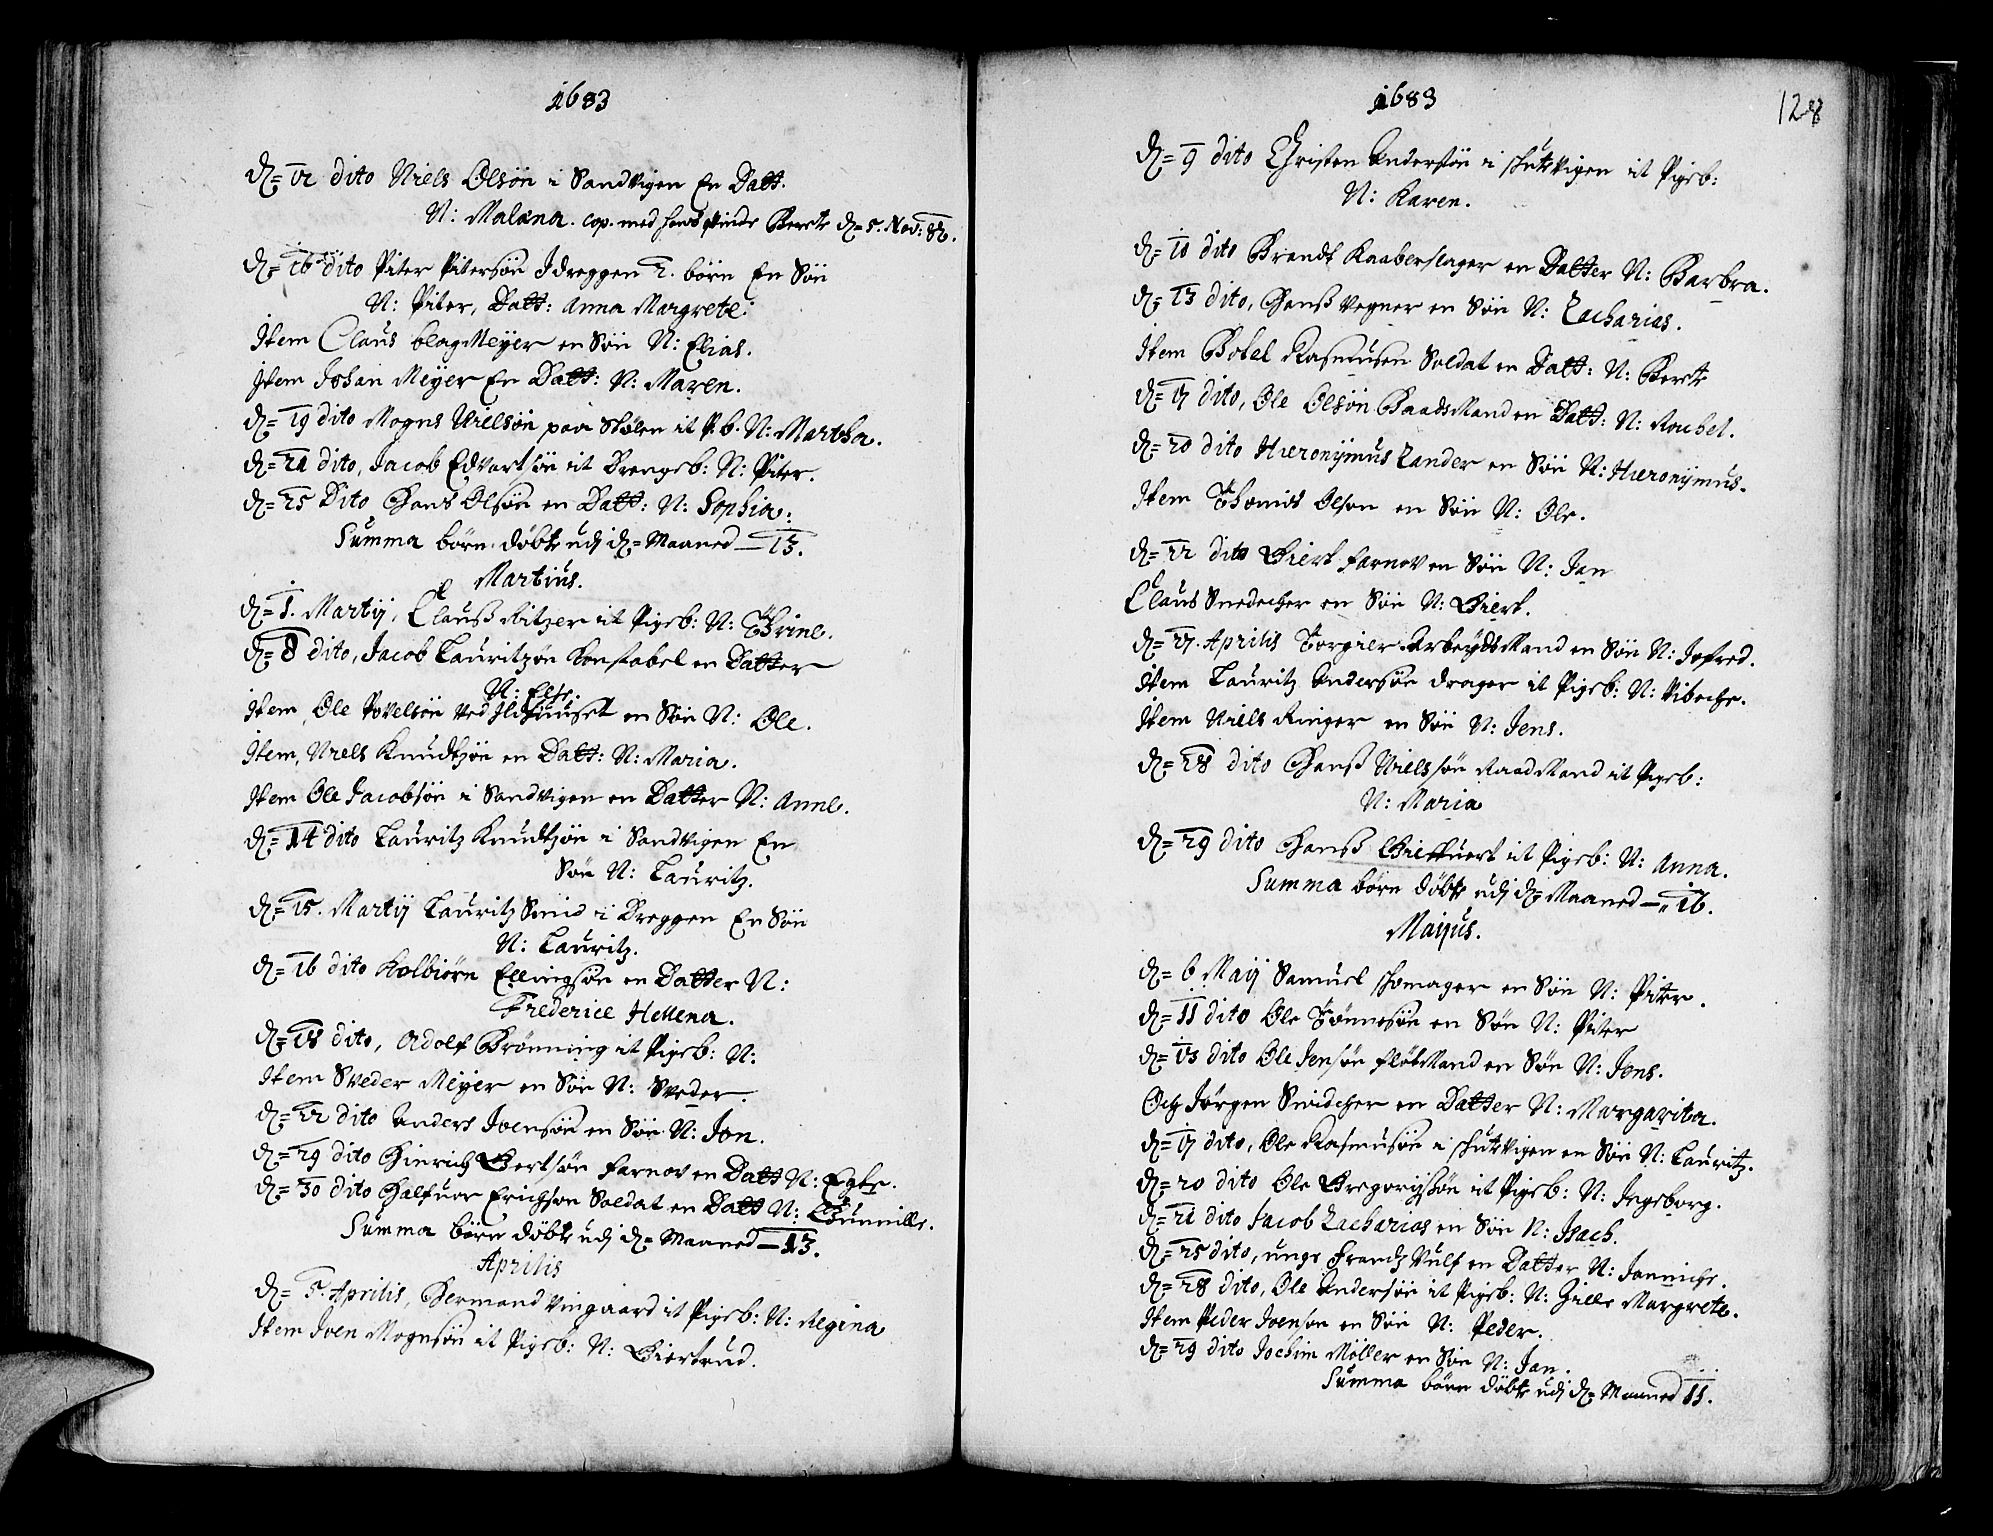 1683
D= 12 dito Niels Olsön i Sandvigen En Datt.
N: Malæna. cop. med hans qvinde Berete d= 5. Nov: 82.
D= 16 dito Piter Pitersön I dreggen 2. börn En Sön
N: Piter, Datt: Anna Margrete:
Item Claus blagMeyer en Sön N: Elias.
Item Johan Meyer En Datt: N: Maren.
D= 19 dito Mogns Nielsön paa Stölen it P.b. N: Martha.
D= 21 dito, Jacob Edvartsön it Drengeb: N: Piter.
D= 25 Dito Hans Olsön en Datt: N: Sophia:
Summa börn döbte udj d= Maaned — 13.
Martius.
D= 1. Martij, Clauss Ritzer it Pigeb: N: Thrine.
D= 8 dito, Jacob Lauritzön Konstabel en Datter
N: Else.
Item, Ole Povelsön ved Ildhuuset en Sön N: Ole.
Item, Niels Knudtzön en Datt: N: Maria.
Item Ole Jacobsön i Sandvigen en Datter N: Anne.
D= 14 dito Lauritz Knudtzön i Sandvigen En
Sön N: Lauritz.
D= 15. Martij Lauritz Smid i Dreggen En Sön
N: Lauritz.
D= 16 dito Kolbiörn Ellingsön en Datter N:
Frederice Hellena.
D= 18 dito, Adolf Brönning it Pigeb: N:
Item Sveder Meyer en Sön N: Sveder.
D= 22 dito Anders Joensön en Sön N: Jon.
D= 29 dito Hinrich Gertsön farnov en Datt N: Egte.
D= 30 dito Halfuor Erichson Soldat en Datt N: Gunnille.
Summa börn döbte udj d= Maaned — 13.
Aprilis
D= 5. Aprilis, Hermand Vingaard it Pigeb: N: Regina
Item Joen Mognsön it Pigeb: N: Giertrud.
1683
128
D= 9 dito Christen Andersön i skutevigen it Pigeb:
N: Karen.
D= 10 dito Brendt Kaaberslager en Datter N: Barbra.
D= 13 dito, Hanss Vegner en Sön N: Zacharias.
Item Botel Rasmusen Soldat en Datt: N: Berete
D= 17 dito, Ole Olsön BaadsMand en Datt: N: Rachel.
D= 20 dito Hieronijmus Zander en Sön N: Hieronijmus.
Item Thomis Olson en Sön N: Ole.
D= 22 dito Giert farnov en Sön N: Jan
Claus Snedecher en Sön N: Giert.
D= 27. Aprilis Torgier ArbeydsMand en Sön N: Jofred.
Item Lauritz Andersön drager it Pigeb: N: Vibeche.
Item Niels Ringer en Sön N: Jens.
D= 28 dito Hanss Nielssön RaadMand it Pigeb:
N: Maria
D= 29 dito Hanss Gieffuert it Pigeb: N: Anna.
Summa börn döbte udj d= Maaned — 16.
Maijus.
D= 6 Maij Samuel skomager en Sön N: Piter.
D= 11 dito Ole Tönnesön en Sön N: Piter
D= 13 dito Ole Jensön flötMand en Sön N: Jens.
Och Jörgen Snidcher en Datter N: Margarita.
D= 17 dito, Ole Rasmusön i skutevigen en Sön N: Lauritz.
D= 20 dito Ole Gregorijssön it Pigeb: N: Jngeborg.
D= 21 dito Jacob Zacharias en Sön N: Isach.
D= 25 dito, unge Frantz Vulf en Datter N: Janniche.
D= 28 dito, Ole Andersön it Pigeb: N: Zille Margrete.
Item Peder Joenson en Sön N: Peder.
D= 29 dito Jochim Möller en Sön N: Jan.
Summa börn döbte udj d= Maaned 11.